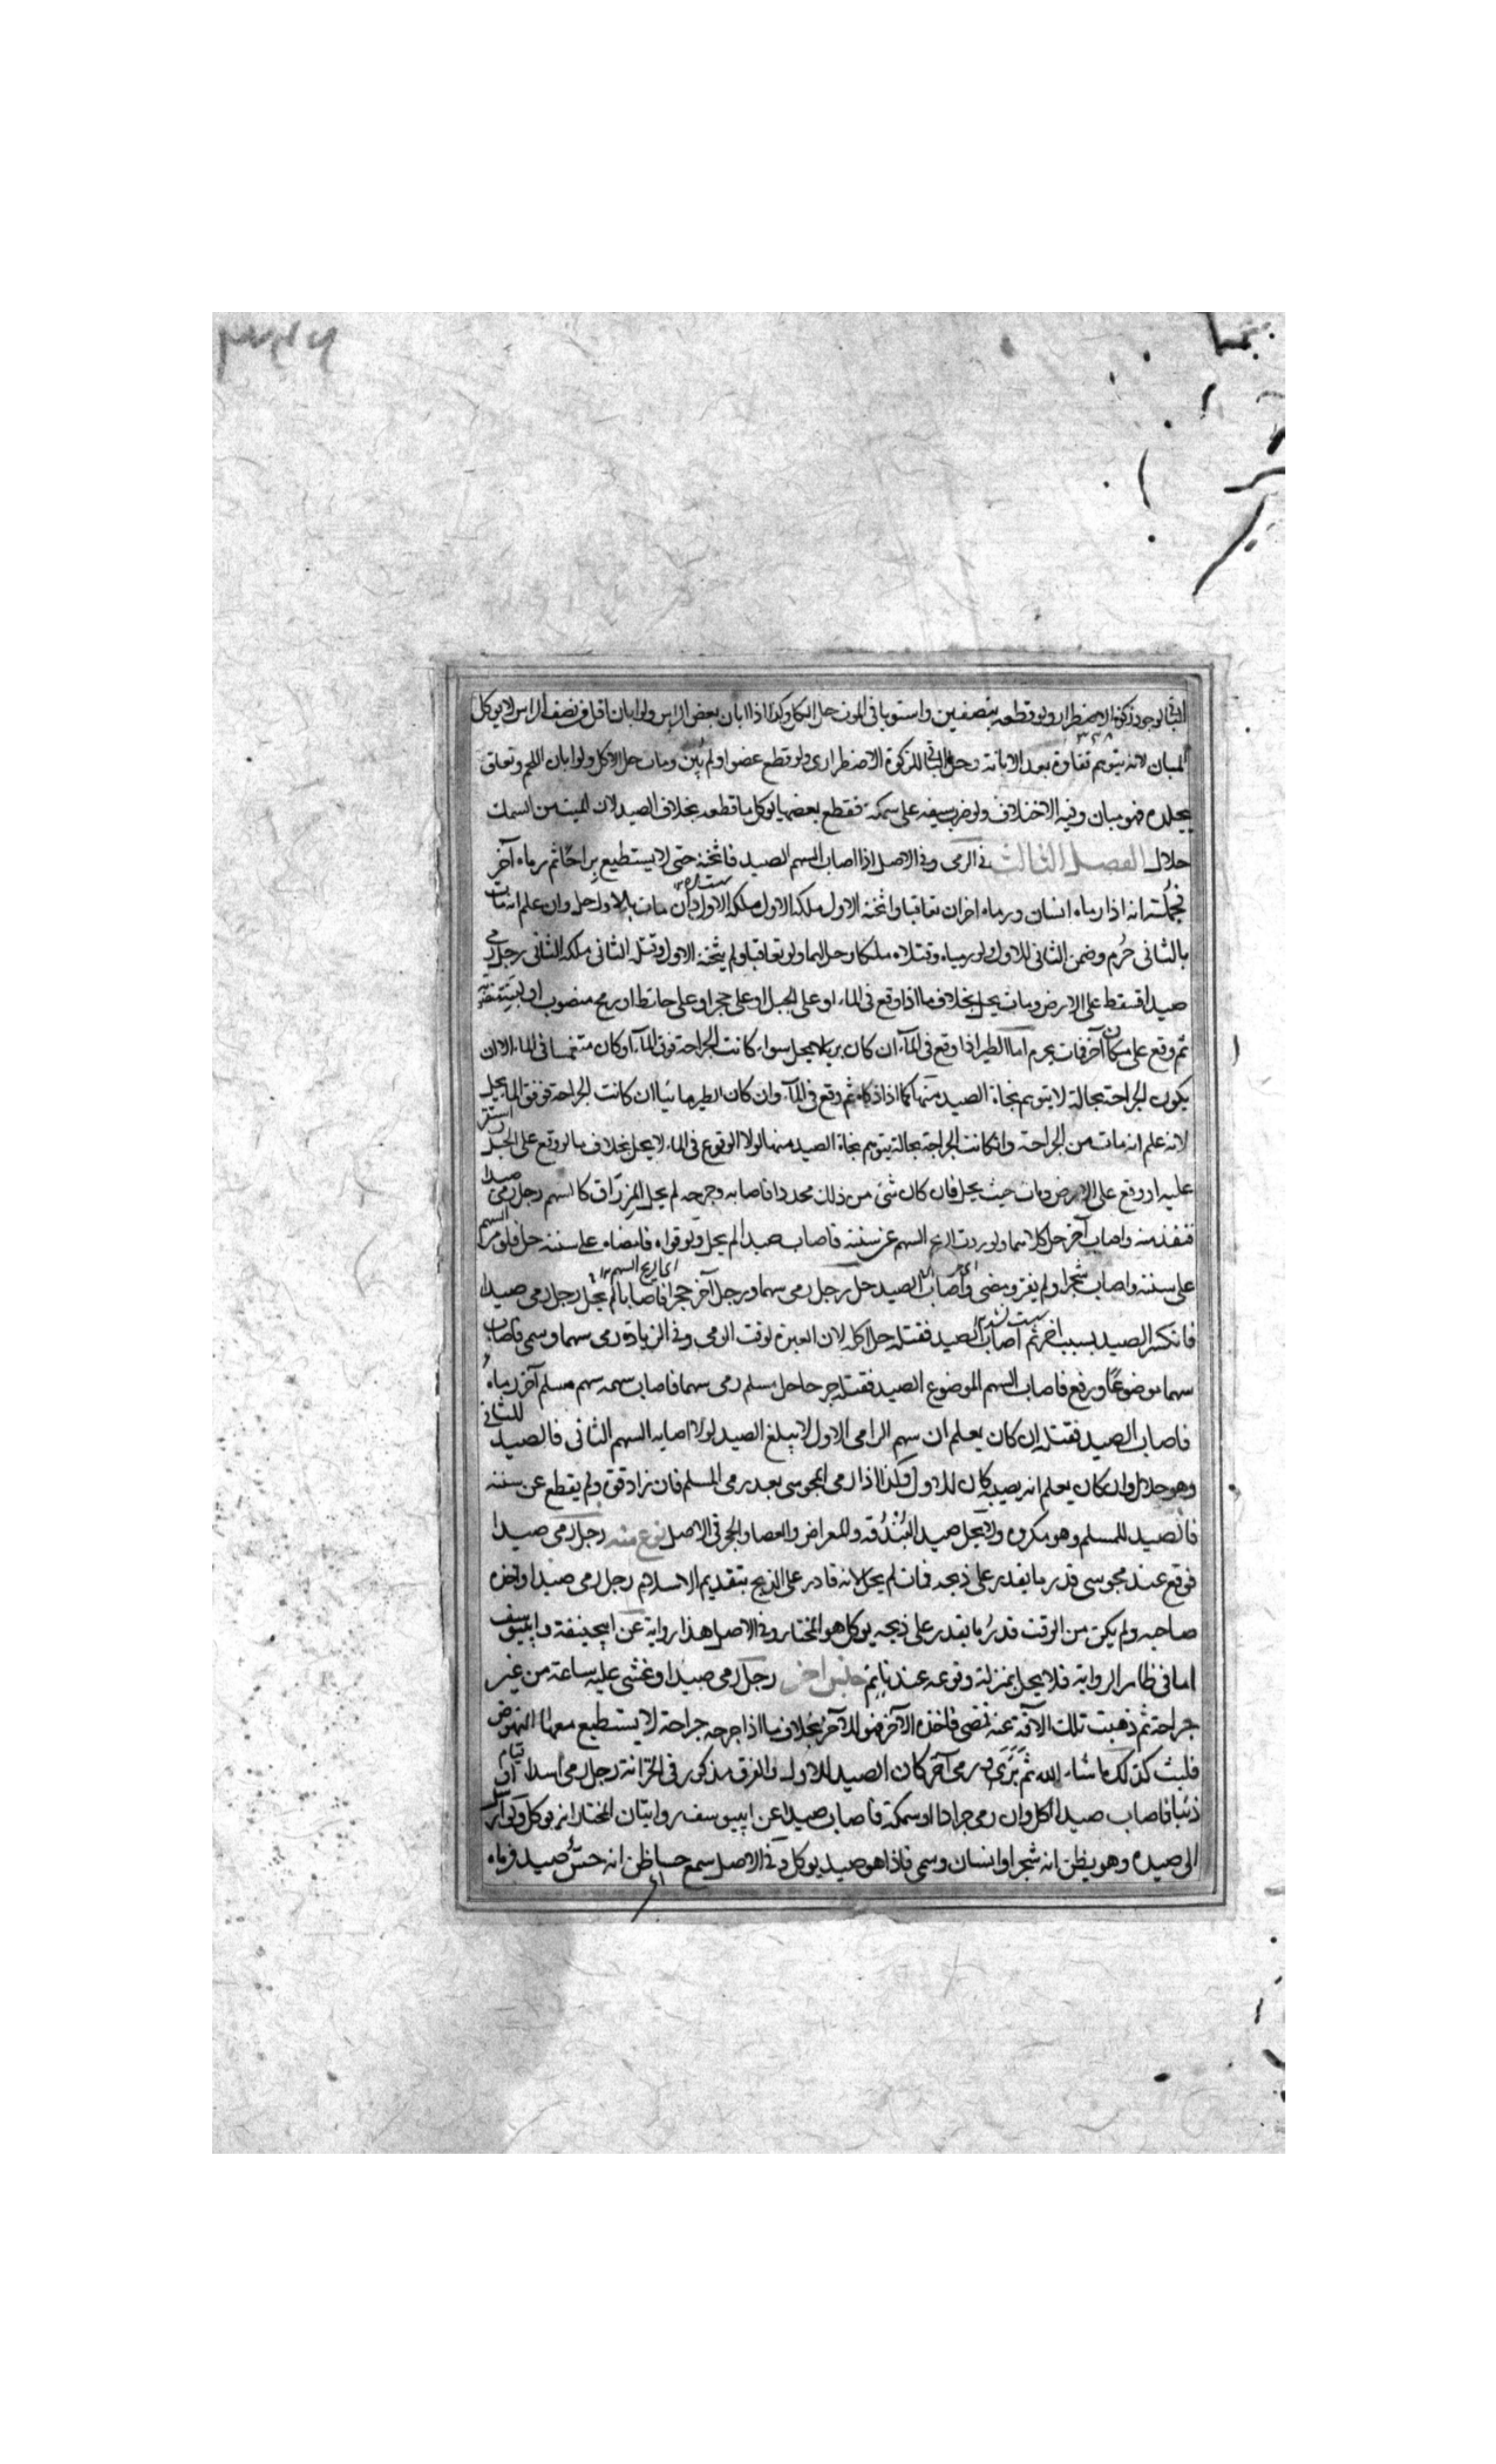 الباقى لوجود ذكوة الاضطرار ولو قطعه بنصفين واستويا فى الموت حل الكل وكذا اذا ابان بعض الراس ولو ابان اقل من نصف الراس لا يوكل
المبان لانه يتوهم بقاوه بعد الابانة وحل الباقى للذكوة الاضطرارى ولو قطع عضوا ولم يبن ومات حل الاكل ولو ابان اللحم وتعلق
بجلده فهو مبان وفيه الاختلاف ولو ضرب سيفه على سمكة فقطع بعضها يوكل ما قطعه بخلاف الصيد لان الميت من السمك
حلال الفصل الثالث فى الرمى وفى الاصل اذا اصاب السهم الصيد فاثخنه حتى لا يستطيع براحًا ثم رماه آخر
فجملته انه اذا رماه انسان ورماه اخران تعاقبا واثخنه الاول ملكه الاول وان مات بالاول حل وان علم انه مات
بالثانى حرُم وضمن الثانى للاول ولو رمياه وقتلاه ملكا وحل لهما ولو تعاقبا ولم يثخنه الاول وقتله الثانى ملكه الثانى رجل رمى
صيدا فسقط على الارض ومات يحل بخلاف ما اذا وقع فى الماء او على الجبل او على حجر او على حائط او رمح منصوب او
ثم وقع على مكان آخر فمات يحرم اما الطير اذا وقع فى المآء ان كان بريا لا يحل سواء كانت الجراحة فوق المآء او كان منغمسا فى الماء الا ان
يكون الجراحة بحالة لا يتوهم نجاة الصيد منها كما اذا ذكاه ثم وقع فى المآء وان كان الطير مائيا ان كانت الجراحة فوق الماء يحل
لانه علم انه مات من الجراحة وان كانت الجراحة بحالة يتوهم نجاة الصيد منها لولا الوقوع فى الماء لا يحل بخلاف ما لو وقع على الجبل استقر
عليه او وقع على الارض ومات حيث يحل فان كان شئ من ذلك محددا فاصابه وجرحه لم يحل المزراق كالسهم رجل رمى صيدا
فنفذ منه واصاب آخر حل كلاهما ولو ردت الريح السهم عن سننه فاصاب صيدا لم يحل ولو قواه فامضاه على سننه حل فلو مر السهم
على سننه واصاب شجرا ولم يغره ومضى واصاب الصيد حل رجل رمى سهما ورجل آخر حجرا فاصابا لم يحل رجل رمى صيدا
فانكسر الصيد بسبب اخر ثم اصاب الصيد فقتله حل اكله لان العبرة لوقت الرمى وفى الزيادة رمى سهما وسمى فاصاب
سهما موضوعًا ورفع فاصاب السهم الموضوع الصيد فقتله جرحا حل مسلم رمى سهما فاصاب سهمه سهم مسلم آخر رماه
فاصاب الصيد فقتله ان كان يعلم ان سهم الرامى الاول لا يبلغ الصيد لولا اصابه السهم الثانى فالصيد للثانى
وهو حلال وان كان يعلم انه يصيبه كان للاول وكذا اذا رمى المجوسى بعد رمى المسلم فان زاد قوة ولم يقطع عن سننه
فالصيد للمسلم وهو مكروه ولا يحل صيد البُنْدُقه والمعراض والعصا والحجر فى الاصل نوع منه رجل رمى صيدا
فوقع عند مجوسى قدر ما يقدر على ذبحه فمات لم يحل لانه قادر على الذبح بتقديم الاسلام رجل رمى صيدا واخذه
صاحبه ولم يكن من الوقت قدرُ ما يقدر على ذبحه يوكل هو المختار وفى الاصل هذا رواية عن ابيحنيفة وابيوسف
اما فى ظاهر الرواية فلا يحل بمنزلة وقوعه عند نائم جنس اخر رجل رمى صيدا وغشى عليه ساعة من غير
جراحة ثم ذهبت تلك الآفة عنه فمضى فاخذه الآخر فهو للآخر بخلاف ما اذا جرحه جراحة لا يستطيع معها النهوض
فلبث كذلك ما شاء الله ثم برئ ورمى آخر كان الصيد للاول والفرق مذكور فى الخزانة رجل رمى اسدا او
ذئبا فاصاب صيدا اكل وان رمى جرادا او سمكة فاصاب صيدا عن ابيوسف روايتان المختار انه يوكل ولو ارسل
الى صيده وهو يظن انه شجر او انسان وسمى فاذا هو صيد يوكل وفى الاصل سمع حسا ظن انه حسّ صيد فرماه